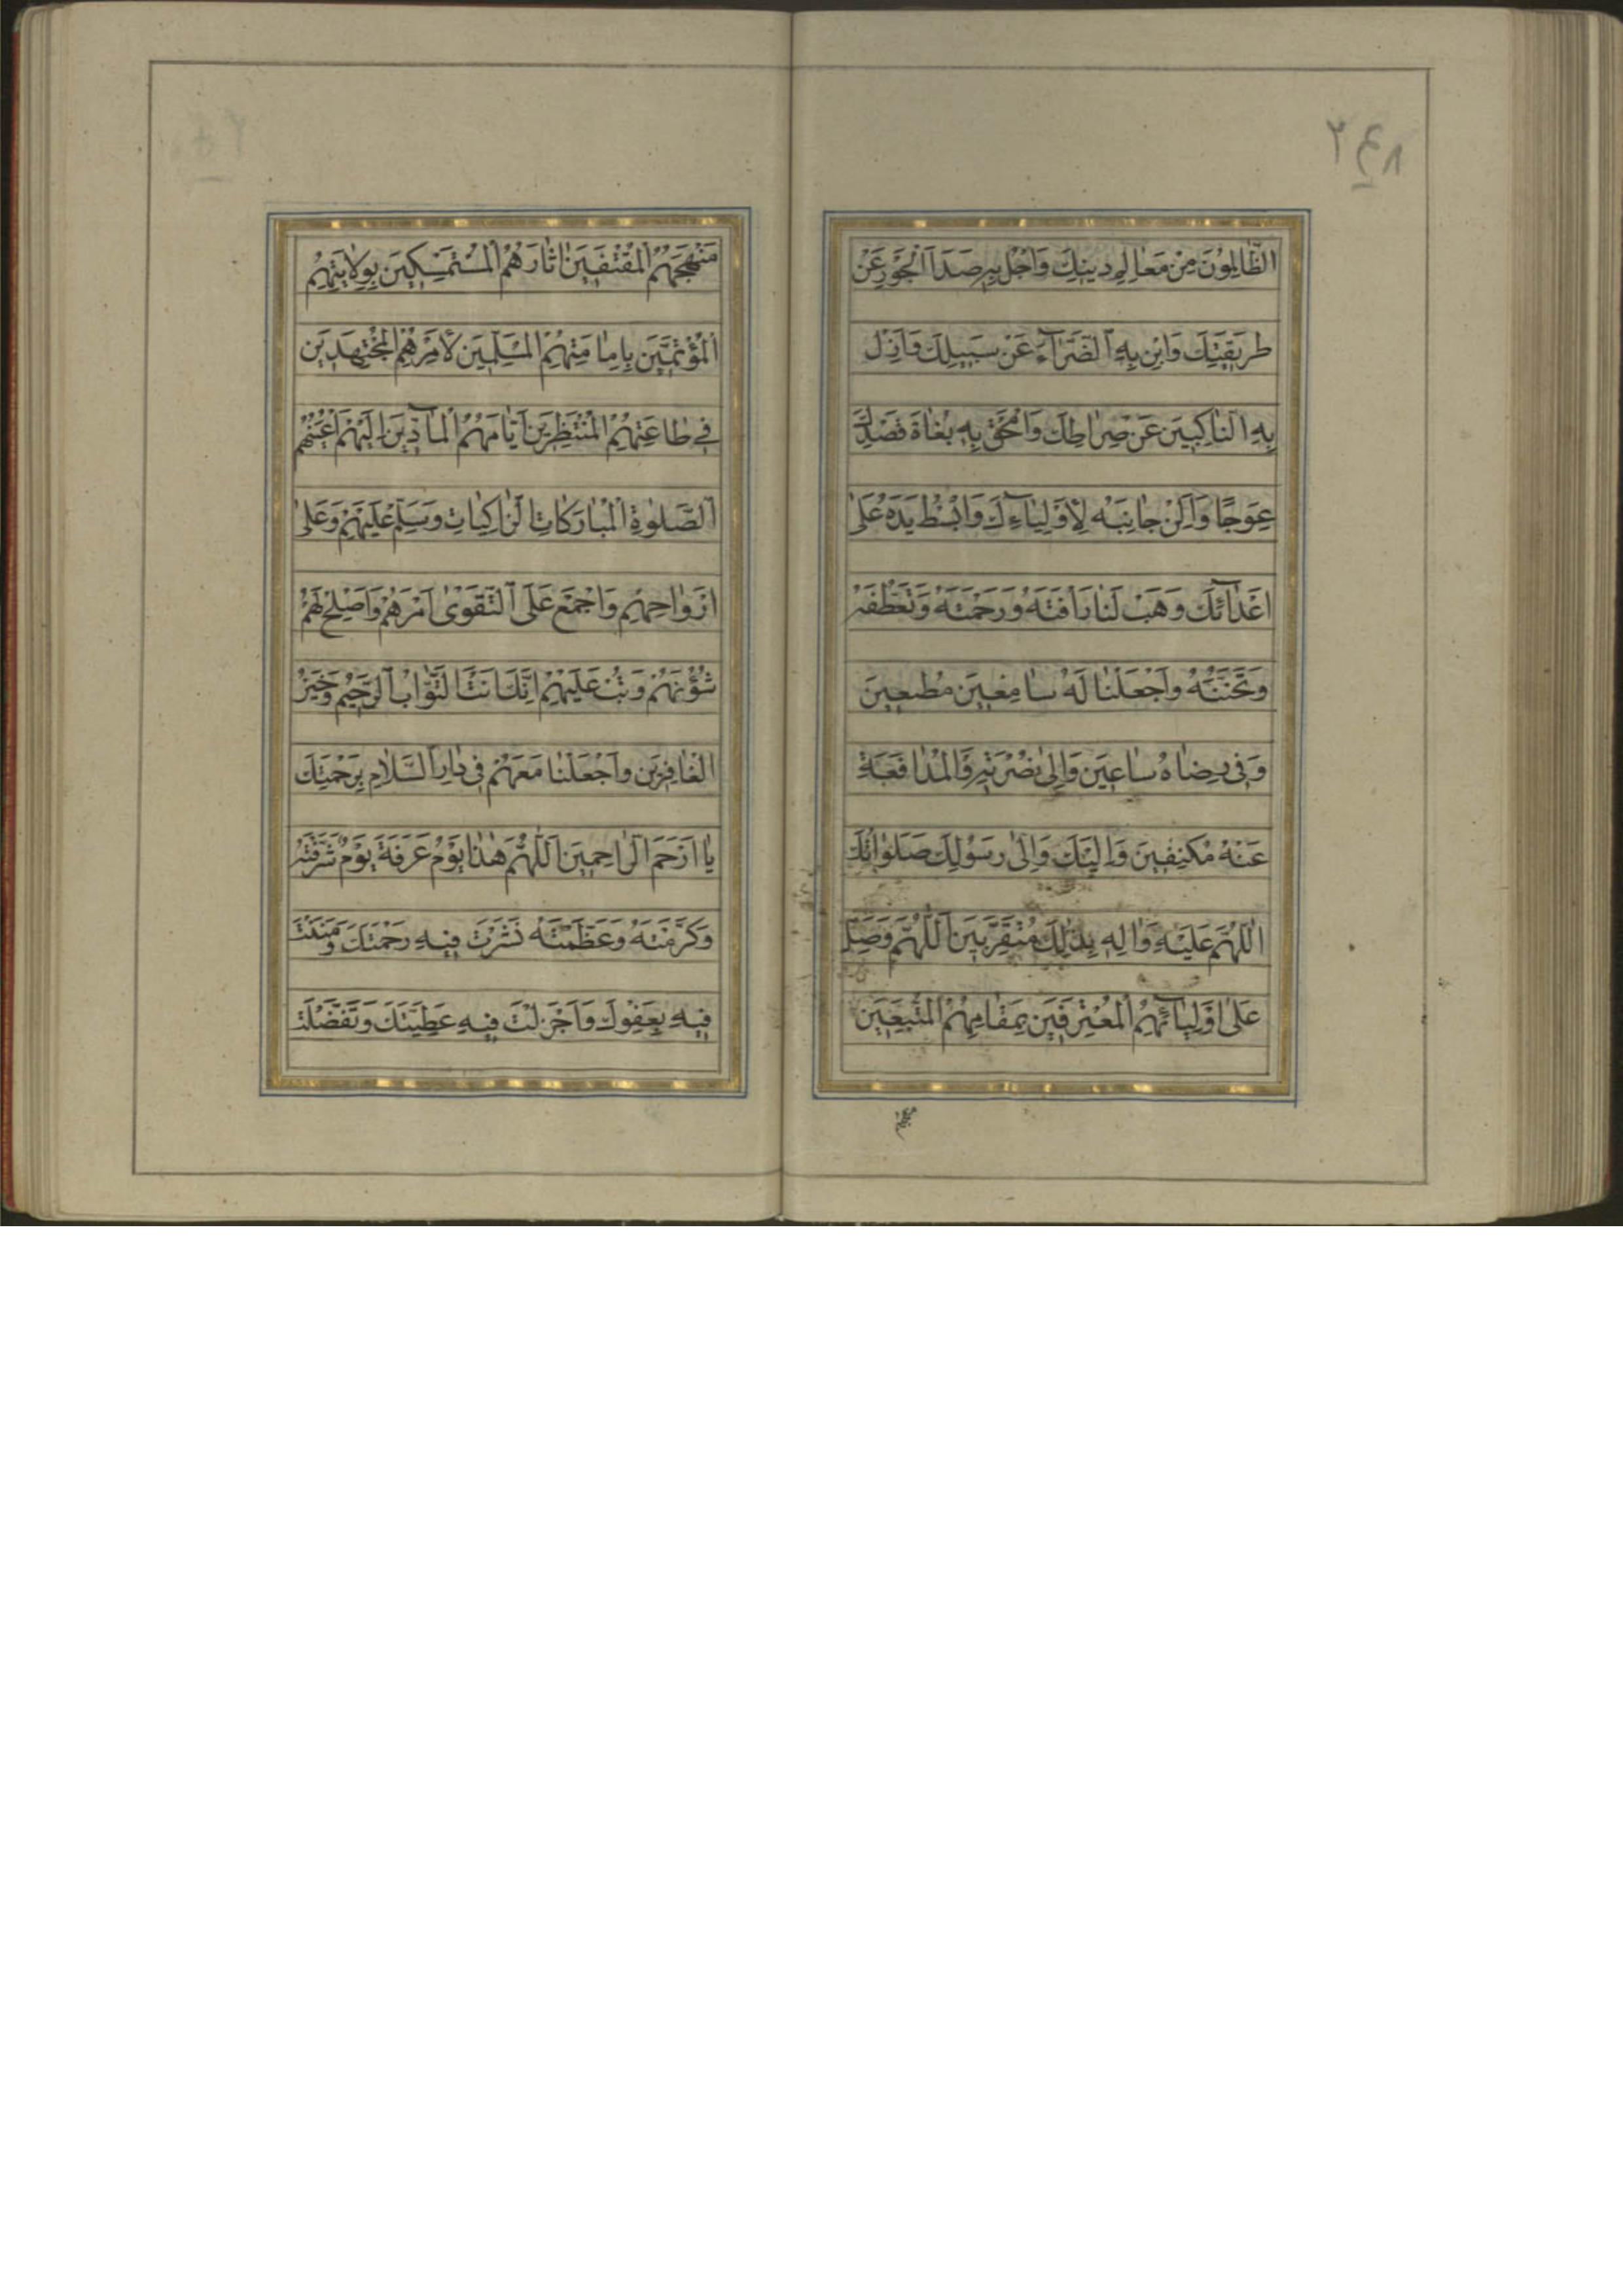 الظَّالِمُونَ مِنْ مَعَالِمِ دِينِكَ وَاجْلُ بِهِ صَدَاَ الْجَوْرِ عَنْ
طَرِيقَتِكَ وَابِنْ بِهِ الضَّرَّآءَ عَنْ سَبِيلِكَ وَاَزِلْ
بِهِ النَّاكِبِينَ عَنْ صِرَاطِكَ وَامْحَقْ بِهِ بُغَاةَ قَصْدِكَ
عِوَجًا وَاَلِنْ جَانِبَهُ لِاَوْلِيَآءِكَ وَابْسُطْ يَدَهُ عَلَى
اَعْدَآئِكَ وَهَبْ لَنَا رَاْفَتَهُ وَرَحْمَتَهُ وَتَعَطُّفَهُ
وَتَحَنُّنَهُ وَاجْعَلْنَا لَهُ سَامِعِينَ مُطِيعِينَ
وَفِى رِضَاهُ سَاعِينَ وَاِلَى نُصْرَتِهِ وَالْمُدَافَعَةِ
عَنْهُ مُكْنِفِينَ وَاِلَيْكَ وَاِلَى رَسُولِكَ صَلَوَاتُكَ
اللّٰهُمَّ عَلَيْهِ وَاٰلِهِ بِذٰلِكَ مُتَقَرِّبِينَ اَللّٰهُمَّ وَصَلِّ
عَلَى اَوْلِيَآئِهِمُ الْمُعْتَرِفِينَ بِمَقَامِهِمُ الْمُتَّبِعِينَ
مَنْهَجَهُمُ الْمُقْتَفِينَ اٰثَارَهُمُ الْمُسْتَمْسِكِينَ بِوِلَايَتِهِمُ
الْمُؤْتَمِّينَ بِاِمَامَتِهِمُ الْمُسَلِّمِينَ لِاَمْرِهِمُ الْمُجْتَهِدِينَ
فِى طَاعَتِهِمُ الْمُنْتَظِرِينَ اَيَّامَهُمُ الْمَآدِّينَ اِلَيْهِمْ اَعْيُنَهُمُ
الصَّلَوٰةِ الْمُبَارَكَاتِ الزَّاكِيَاتِ وَسَلِّمْ عَلَيْهِمْ وَعَلَى
اَرْوَاحِهِمْ وَاجْمَعْ عَلَى التَّقْوَى اَمْرَهُمْ وَاَصْلِحْ لَهُمْ
شُؤُنَهُمْ وَتُبْ عَلَيْهِمْ اِنَّكَ اَنْتَ التَّوَّابُ الرَّحِيمُ وَخَيْرُ
الْغَافِرِينَ وَاجْعَلْنَا مَعَهُمْ فِى دَارِ السَّلَامِ بِرَحْمَتِكَ
يَا اَرْحَمَ الرَّاحِمِينَ اَللّٰهُمَّ هٰذَا يَوْمُ عَرَفَةَ يَوْمٌ شَرَّفْتَهُ
وَكَرَّمْتَهُ وَعَظَّمْتَهُ نَشَرْتَ فِيهِ رَحْمَتَكَ وَمَنَنْتَ
فِيهِ بِعَفْوِكَ وَاَجْزَلْتَ فِيهِ عَطِيَّتَكَ وَتَفَضَّلْتَ